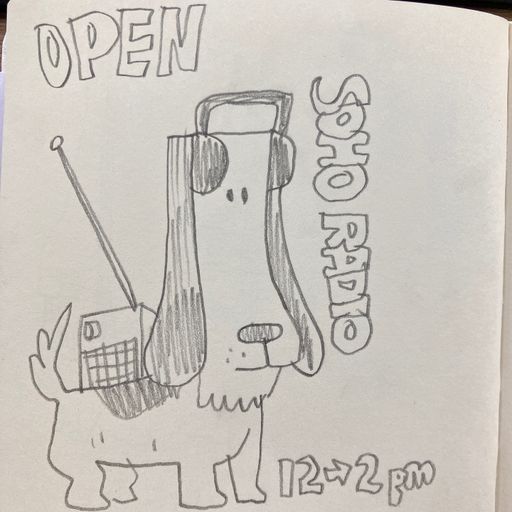 OPEN
SOHO RADIO
12→2 pm